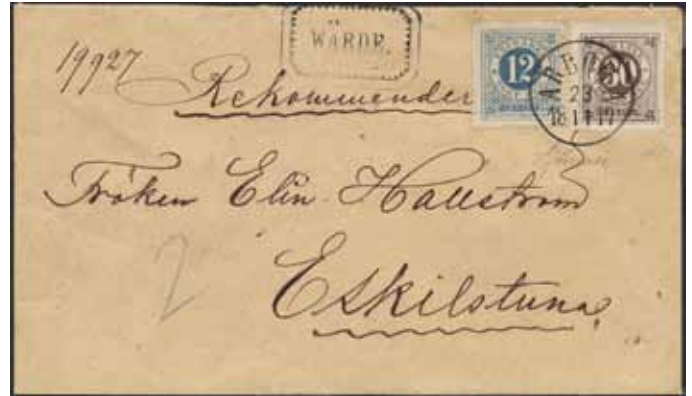 WÄRDE.
19927
Rekommender
12
ARBOGA
23
Fröken Elin Hallström
2
Eskilstuna